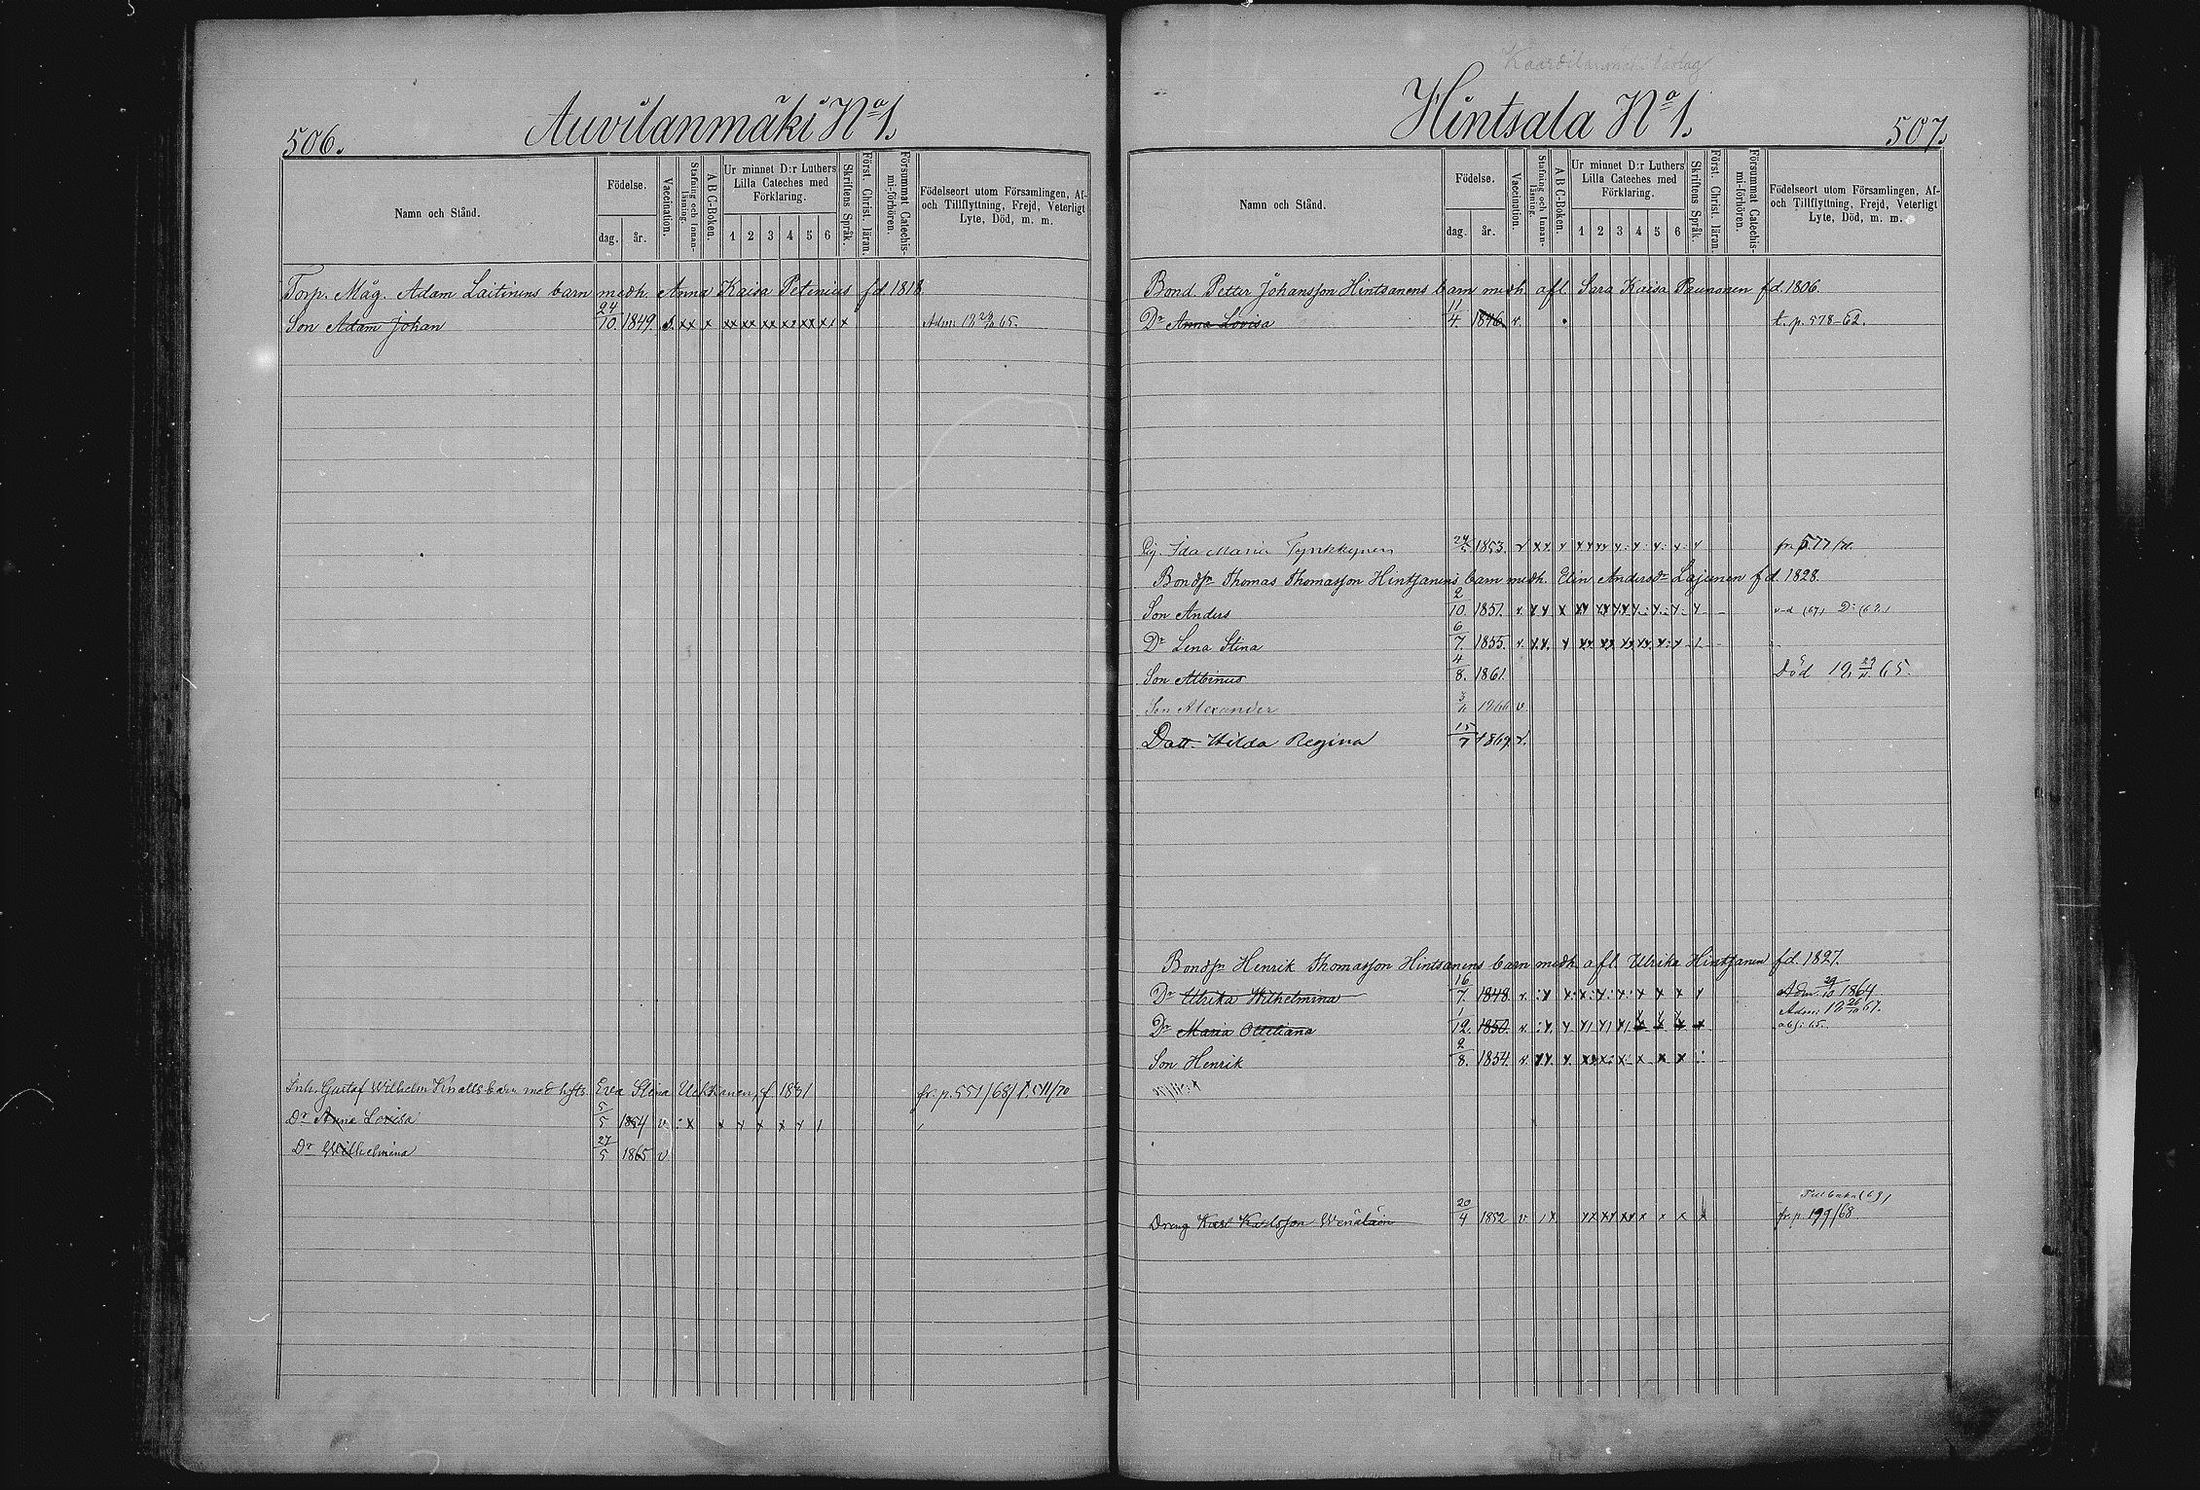 506.
Auvilanmäki No 1.
Namn och Stånd.
Födelse.
dag.
år.
Vaccination.
Stafning och Innanläsning.
A B C-Boken.
Ur minnet D:r Luthers Lilla Cateches med Förklaring.
1 2 3 4 5 6
Skriftens Språk.
Först. Christ. läran.
Försummat Catechismi-förhören.
Födelseort utom Församlingen, Af- och Tillflyttning, Frejd, Veterligt Lyte, Död, m. m.
Torp. Måg. Adam Laitinens barn medh. Anna Kaisa Petenius fd 1818
Son Adam Johan 24/10. 1849. Adm: 18 65.
Inh. Gustaf Wilhelm Knalls barn med hfts. Eva Stina f 1831 fr. p. 551/68/
Dr Anna Lovisa 5/5 1854 v
Dr Wilhelmina 27/5 1865 v
507.
Hintsala No 1.
Namn och Stånd.
Födelse.
dag.
år.
Vaccination.
Stafning och Innanläsning.
A B C-Boken.
Ur minnet D:r Luthers Lilla Cateches med Förklaring.
1 2 3 4 5 6
Skriftens Språk.
Först. Christ. läran.
Försummat Catechismi-förhören.
Födelseort utom Församlingen, Af- och Tillflyttning, Frejd, Veterligt Lyte, Död, m. m.
Bond. Petter Johansson Hintsanens barn medh. afl. Sara Kaisa Paunonen fd. 1806.
Dr Anna Lovisa 11/4. 1846. v. t. p. 578-62.
Pig. Ida Maria Tynkkynen 24/5 1853. v
Bondsn Thomas Thomasson Hintsanens barn medh. Elin Andersdr Lajunen fd. 1828.
Son Anders 2/10. 1851. v.
Dr Lena Stina 6/7. 1855. v.
Son Albinus 4/8. 1861. Död 65.
Son Alexander 1866 v.
Dott. Hilda Regina 15/7 1869 v.
Bondsn Henrik Thomasson Hintsanens barn medh. afl. Ulrika Hintsanen fd. 1827.
Dr Ulrika Wilhelmina 16/7. 1848. v. Adm. 29/10 1864
Dr Maria Ottiliana 1/12. 1850. v. Adm: 18 26/10 67.
Son Henrik 2/8. 1854. v.
Tillbaka (69)
Dreng Karl Karlsson Wenäläin 20/4 1852 v fr. p 199/68